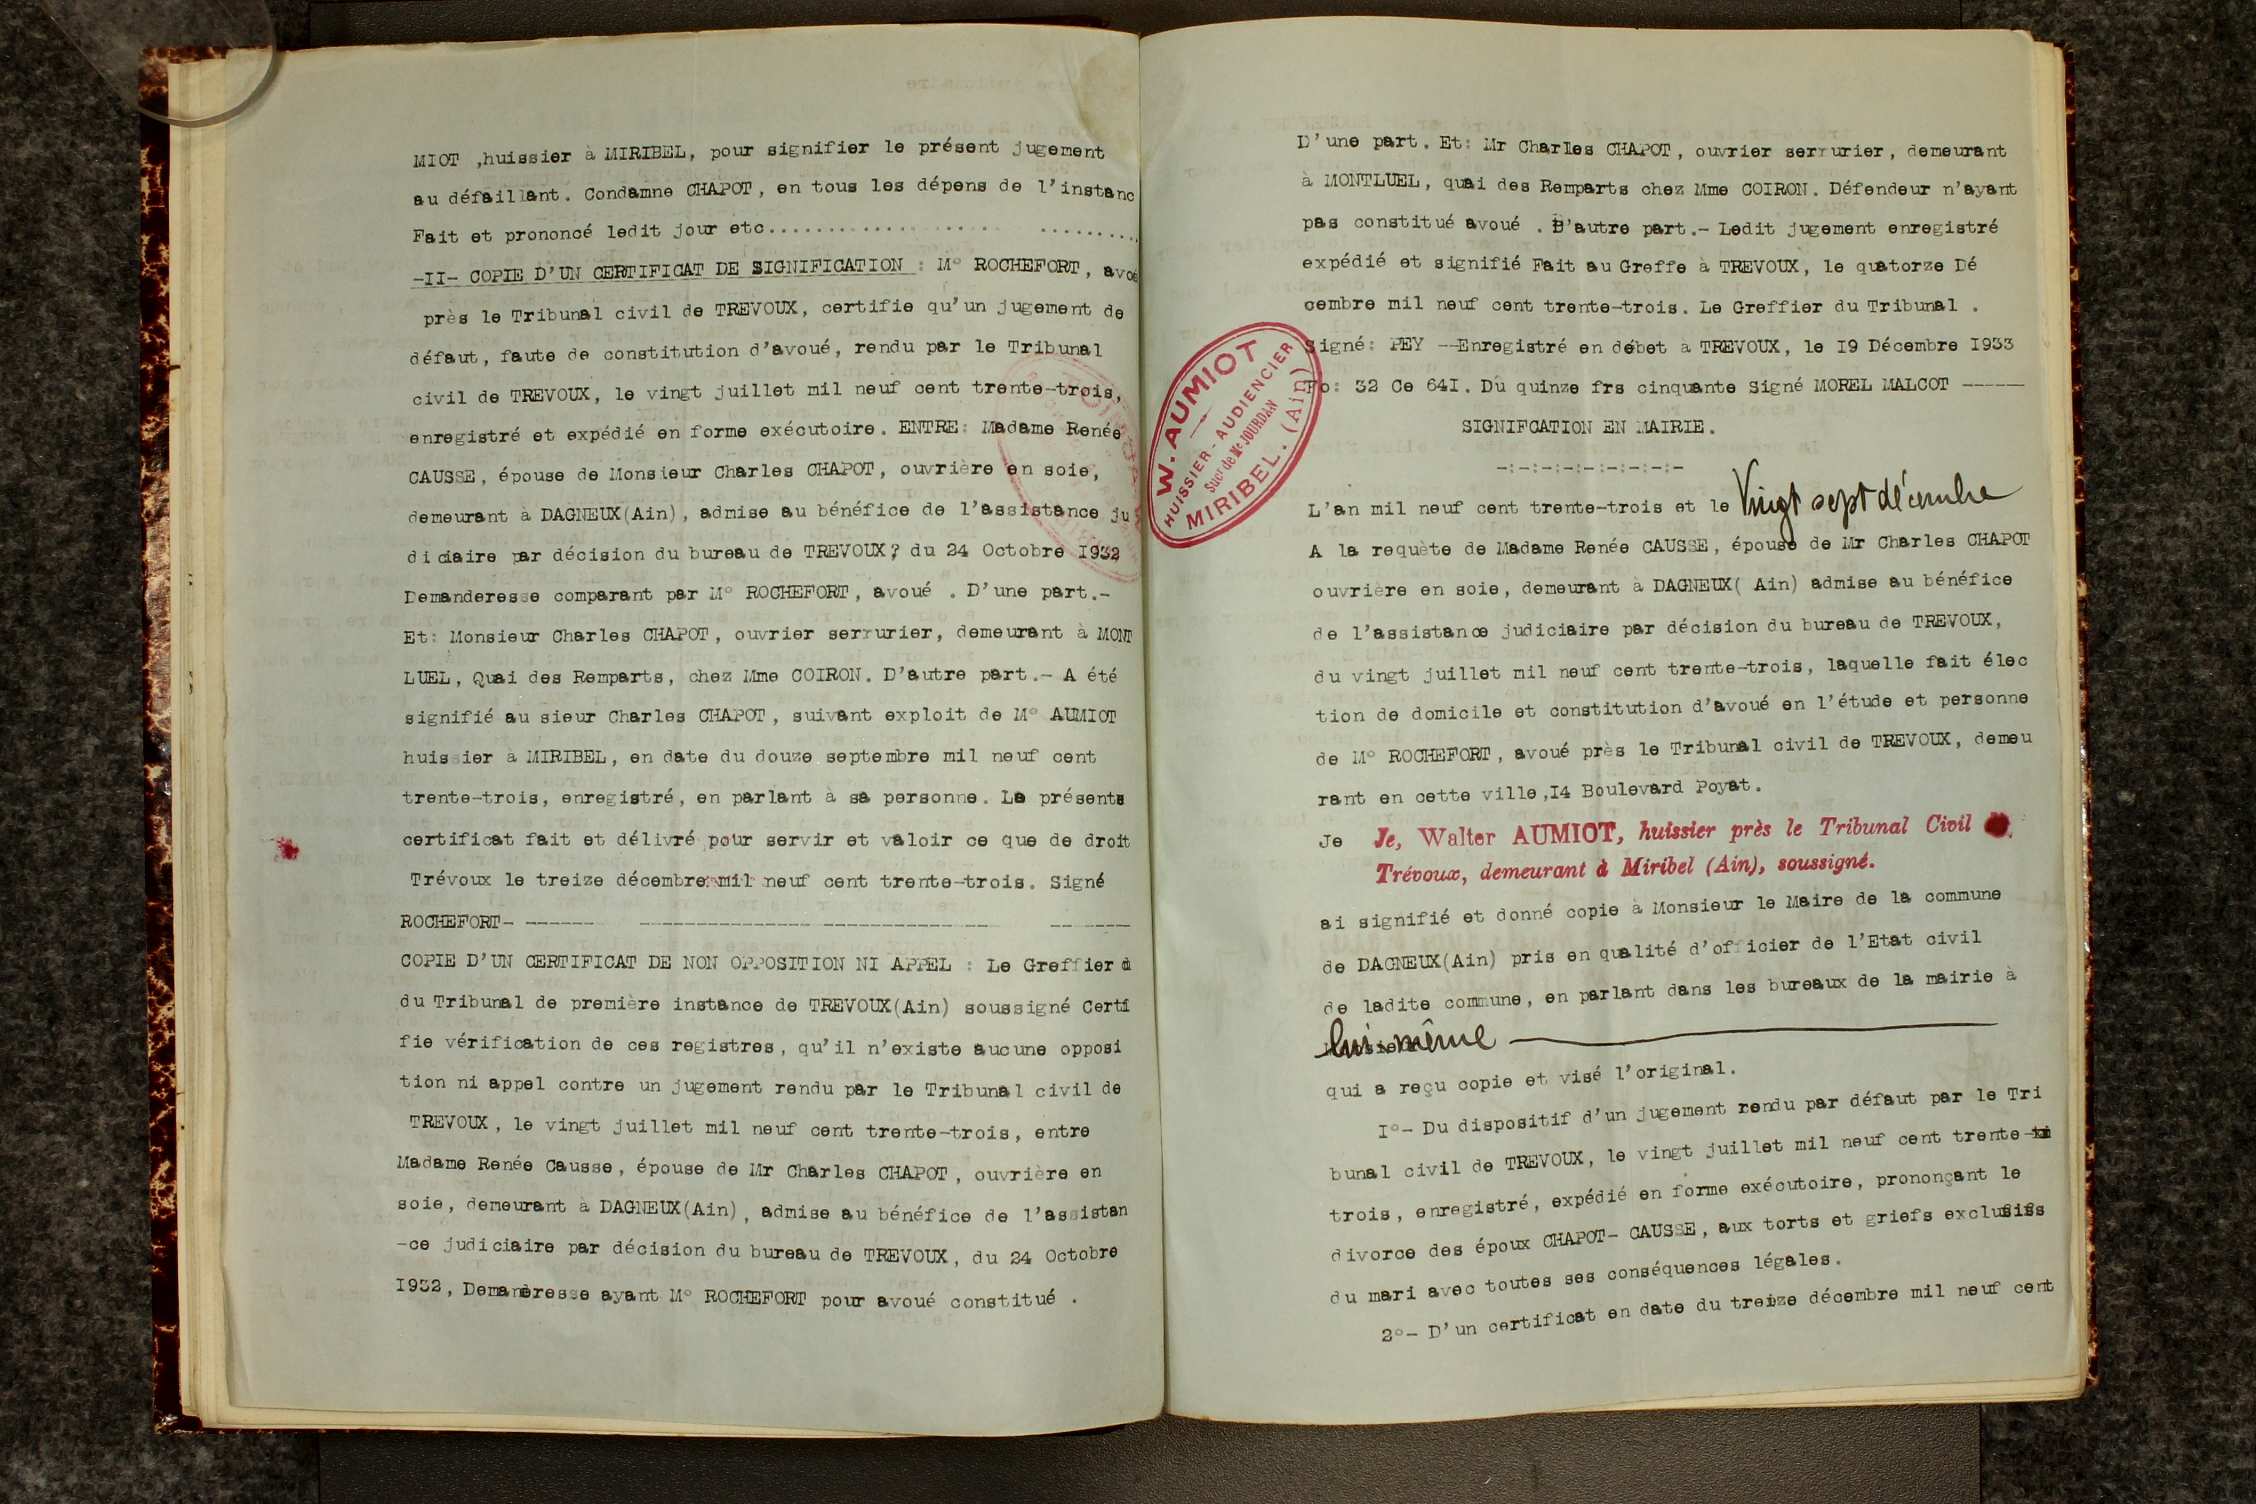 MIOT ,huissier à MIRIBEL, pour signifier le présent jugement
au défaillant. Condamne CHAPOT, en tous les dépens de l'instanc
Fait et prononcé ledit jour etc.................... .........
-II- COPIE D'UN CERTIFICAT DE SIGNIFICATION : M° ROCHEFORT, avoué
près le Tribunal civil de TREVOUX, certifie qu'un jugement de
défaut, faute de constitution d'avoué, rendu par le Tribunal
civil de TREVOUX, le vingt juillet mil neuf cent trente-trois,
enregistré et expédié en forme exécutoire. ENTRE: Madame Renée
CAUSSE, épouse de Monsieur Charles CHAPOT, ouvrière en soie,
demeurant à DAGNEUX(Ain), admise au bénéfice de l'assistance ju
diciaire par décision du bureau de TREVOUX? du 24 Octobre 1932
Demanderesse comparant par M° ROCHEFORT, avoué . D'une part.-
Et: Monsieur Charles CHAPOT, ouvrier serrurier, demeurant à MONT
LUEL, Quai des Remparts, chez Mme COIRON. D'autre part.- A été
signifié au sieur Charles CHAPOT, suivant exploit de M° AUMIOT
huissier à MIRIBEL, en date du douze septembre mil neuf cent
trente-trois, enregistré, en parlant à sa personne. Le présente
certificat fait et délivré pour servir et valoir ce que de droit
Trévoux le treize décembre mil neuf cent trente-trois. Signé
ROCHEFORT- ------- ----------------------------------- -------
COPIE D'UN CERTIFICAT DE NON OPPOSITION NI APPEL : Le Greffier
du Tribunal de première instance de TREVOUX(Ain) soussigné Certi
fie vérification de ces registres, qu'il n'existe aucune opposi
tion ni appel contre un jugement rendu par le Tribunal civil de
TREVOUX, le vingt juillet mil neuf cent trente-trois, entre
Madame Renée Causse, épouse de Mr Charles CHAPOT, ouvrière en
soie, demeurant à DAGNEUX(Ain), admise au bénéfice de l'assistan
-ce judiciaire par décision du bureau de TREVOUX, du 24 Octobre
I932, Demanderesse ayant M° ROCHEFORT pour avoué constitué .
D'une part. Et: Mr Charles CHAPOT, ouvrier serrurier, demeurant
à MONTLUEL, quai des Remparts chez Mme COIRON. Défendeur n'ayant
pas constitué avoué . D'autre part.- Ledit jugement enregistré
expédié et signifié Fait au Greffe à TREVOUX, le quatorze Dé
cembre mil neuf cent trente-trois. Le Greffier du Tribunal .
Signé: PEY --Enregistré en débet à TREVOUX, le I9 Décembre I933
Fo: 32 Ce 64I. Dû quinze frs cinquante Signé MOREL MALCOT -----
W. AUMIOT
HUISSIER-AUDIENCIER
Sucr de Me JOURDAN
MIRIBEL. (Ain)
SIGNIFCATION EN MAIRIE.
-:-:-:-:-:-:-:-:-
L'an mil neuf cent trente-trois et le Vingt sept décembre
A la requète de Madame Renée CAUSSE, épouse de Mr Charles CHAPOT
ouvrière en soie, demeurant à DAGNEUX( Ain) admise au bénéfice
de l'assistance judiciaire par décision du bureau de TREVOUX,
du vingt juillet mil neuf cent trente-trois, laquelle fait élec
tion de domicile et constitution d'avoué en l'étude et personne
de M° ROCHEFORT, avoué près le Tribunal civil de TREVOUX, demeu
rant en cette ville,I4 Boulevard Poyat.
Je Je, Walter AUMIOT, huissier près le Tribunal Civil
Trévoux, demeurant à Miribel (Ain), soussigné.
ai signifié et donné copie à Monsieur le Maire de la commune
de DAGNEUX(Ain) pris en qualité d'officier de l'Etat civil
de ladite commune, en parlant dans les bureaux de la mairie à
lui-même
qui a reçu copie et visé l'original.
I°- Du dispositif d'un jugement rendu par défaut par le Tri
bunal civil de TREVOUX, le vingt juillet mil neuf cent trente-
trois, enregistré, expédié en forme exécutoire, prononçant le
divorce des époux CHAPOT- CAUSSE, aux torts et griefs exclusifs
du mari avec toutes ses conséquences légales.
2°- D'un certificat en date du treize décembre mil neuf cent